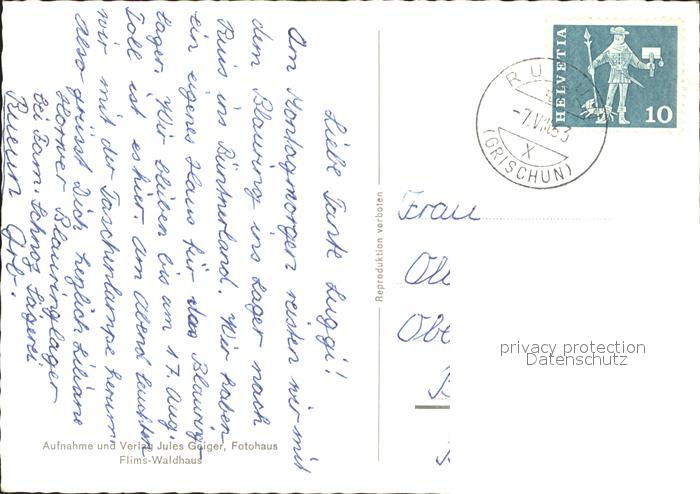 Liebe Tante Luggi!
Am Montagmorgen reisten wir mit
dem Blauring ins Lager nach
Ruis im Bündnerland. Wir haben
ein eigenes Haus für das Blauring-
lager. Wir bleiben bis am 17. Aug.
Toll ist es hier. Am Abend leuchten
wir mit der Taschenlampe herum.
Also grüsst Dich herzlich Liliane
Horwer Blauringlager
bei Fam. Schnoz
Rueun Grb.
Aufnahme und Verlag Jules Geiger, Fotohaus
Flims-Waldhaus
Reproduktion verboten
HELVETIA
10
(GRISCHUN)
X
Frau
Obe
privacy protection
Datenschutz